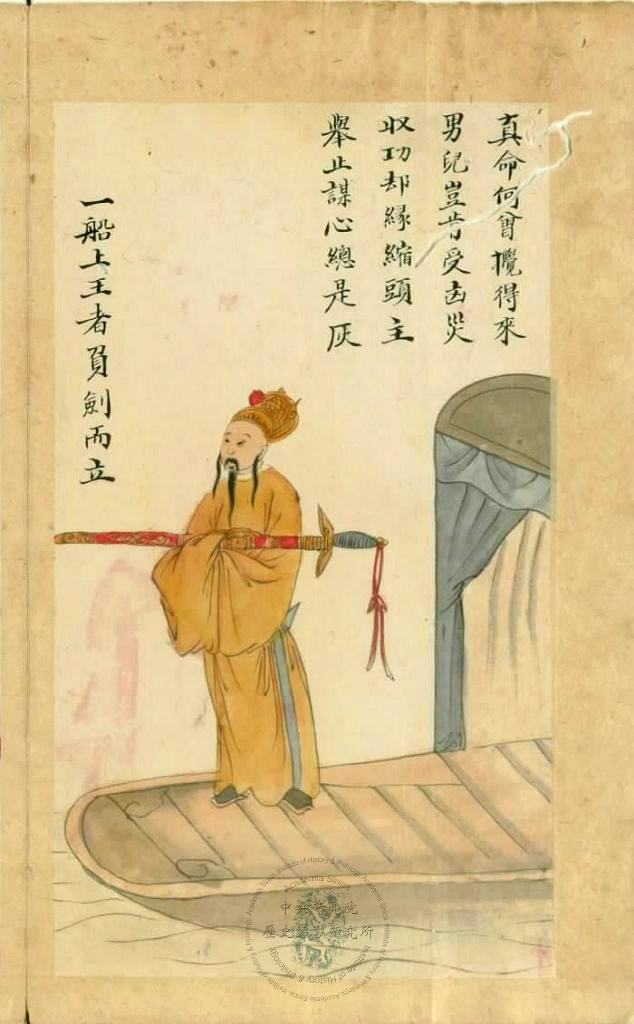 真命何曾攪得來
男兒豈肯受凶災
収功却緣縮頭主
舉止謀心總是灰
一船上王者負劍而立
Institute of History & Philology, Academia Sinica
Academia Sinica
中央研究院
歷史語言研究所
Institute of History & Philology